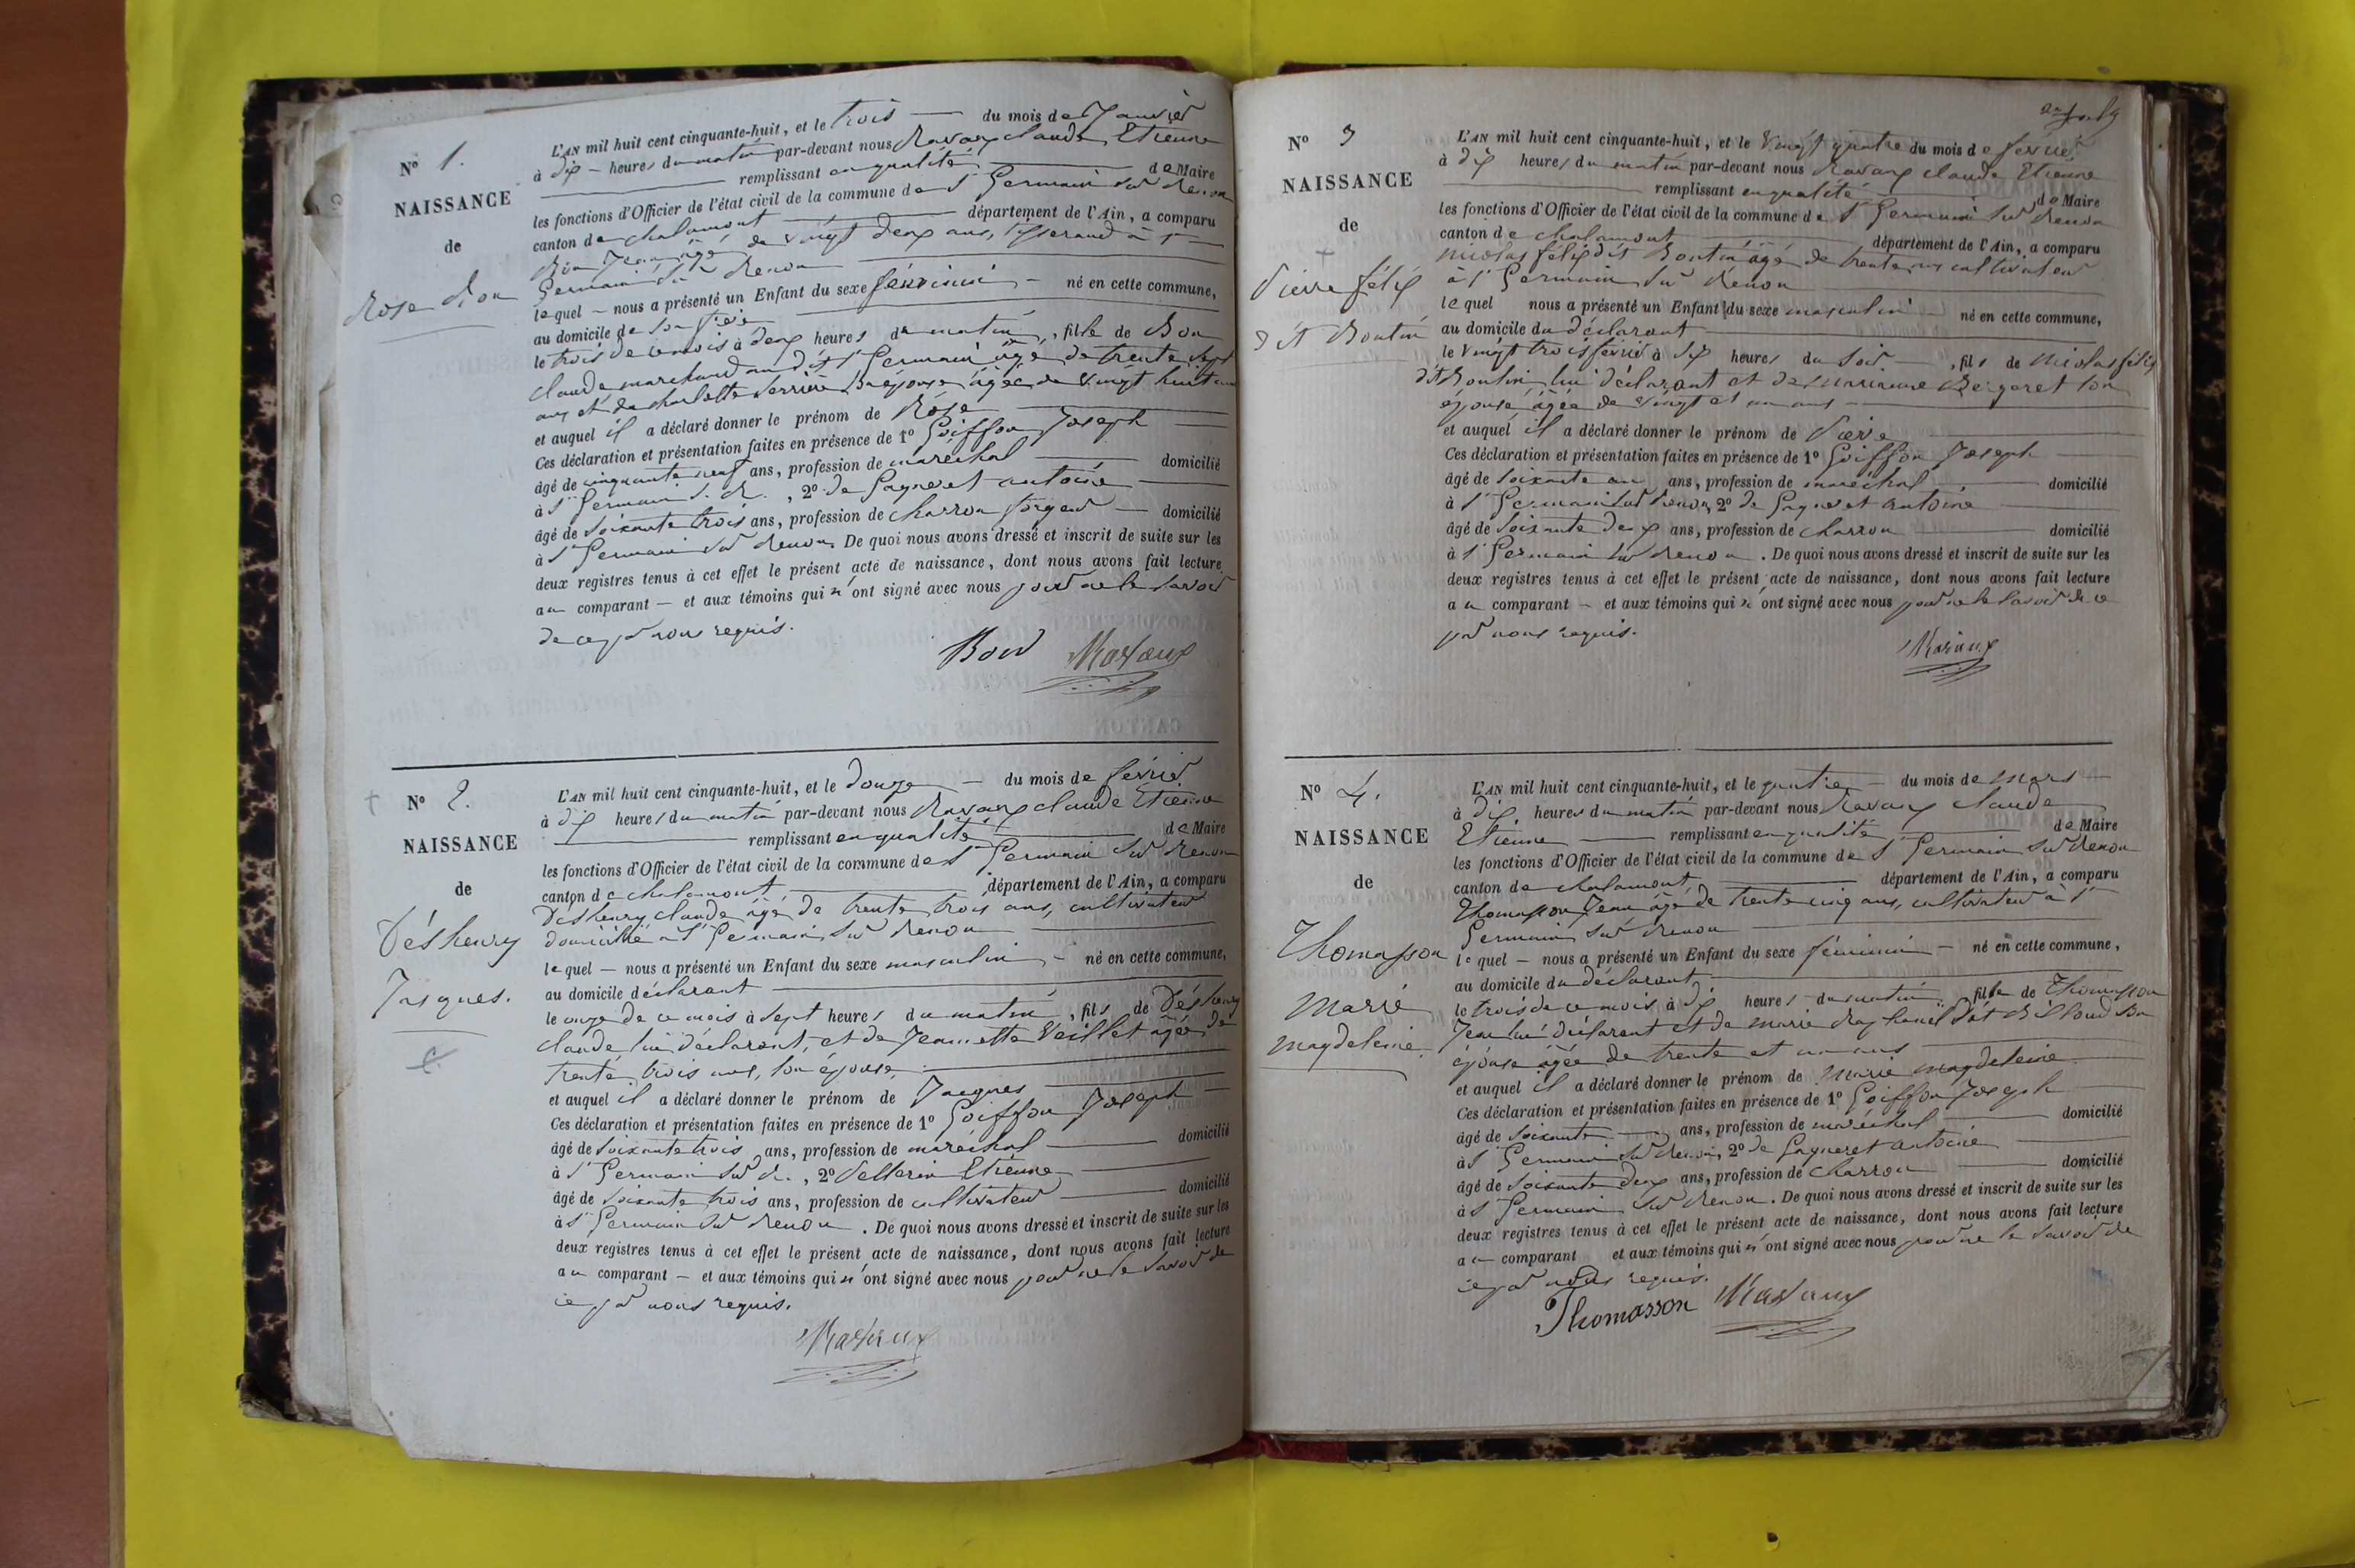 N° 1.
NAISSANCE
de
Rose Bon
L'AN mil huit cent cinquante-huit, et le trois — du mois de Janvier
à dix — heures du matin par-devant nous Ravaux claude Etienne
remplissant en qualité de Maire
les fonctions d'Officier de l'état civil de la commune de St Germain sur Renon
canton de chalamont département de l'Ain, a comparu
Bon Jean âgé de vingt deux ans, tisserand à St
Germain sur Renon
lequel — nous a présenté un Enfant du sexe féminin — né en cette commune,
au domicile de son
le trois de ce mois à deux heures du matin, fille de Bon
claude marchand au dit St Germain âgé de trente sept
ans et de charlotte Perrier son épouse âgée de vingt huit ans
et auquel il a déclaré donner le prénom de Rose
Ces déclaration et présentation faites en présence de 1° Goiffon Joseph
âgé de cinquante neuf ans, profession de maréchal — domicilié
à St Germain s. R., 2° de Gagneret antoine
âgé de soixante trois ans, profession de charron forgeur — domicilié
à St Germain sur Renon. De quoi nous avons dressé et inscrit de suite sur les
deux registres tenus à cet effet le présent acte de naissance, dont nous avons fait lecture
au comparant — et aux témoins qui n'ont signé avec nous pour ne le savoir
de ce par nous requis.
Bon Ravaux
N° 2.
NAISSANCE
de
Déshenry
Jacques.
L'AN mil huit cent cinquante-huit, et le douze — du mois de février
à dix heures du matin par-devant nous Ravaux claude Etienne
remplissant en qualité de Maire
les fonctions d'Officier de l'état civil de la commune de St Germain sur Renon
canton de chalamont département de l'Ain, a comparu
Déshenry claude âgé de trente trois ans, cultivateur
domicilié à St Germain sur Renon
lequel — nous a présenté un Enfant du sexe masculin — né en cette commune,
au domicile déclarant
le onze de ce mois à sept heures du matin, fils de Déshenry
claude lui déclarant, et de Jeannette Veillet âgée de
trente trois ans, son épouse,
et auquel il a déclaré donner le prénom de Jacques
Ces déclaration et présentation faites en présence de 1° Goiffon Joseph
âgé de soixante trois ans, profession de maréchal — domicilié
à St Germain sur R., 2° Pellerin Etienne
âgé de soixante trois ans, profession de cultivateur — domicilié
à St Germain sur Renon. De quoi nous avons dressé et inscrit de suite sur les
deux registres tenus à cet effet le présent acte de naissance, dont nous avons fait lecture
au comparant — et aux témoins qui n'ont signé avec nous pour ne le savoir de
ce par nous requis.
Ravaux
N° 3
NAISSANCE
de
Pierre félix
dit Boutin
L'AN mil huit cent cinquante-huit, et le vingt quatre du mois de février
à dix heures du matin par-devant nous Ravaux claude Etienne
remplissant en qualité de Maire
les fonctions d'Officier de l'état civil de la commune de St Germain sur Renon
canton de chalamont département de l'Ain, a comparu
nicolas félix dit Boutin âgé de trente ans cultivateur
à St Germain sur Renon
lequel nous a présenté un Enfant du sexe masculin né en cette commune,
au domicile du déclarant
le vingt trois février à dix heures du soir, fils de nicolas félix
dit Boutin lui déclarant et de marianne Bergeret son
épouse âgée de vingt et un ans
et auquel il a déclaré donner le prénom de Pierre
Ces déclaration et présentation faites en présence de 1° Goiffon Joseph
âgé de soixante un ans, profession de maréchal domicilié
à St Germain sur Renon, 2° de Gagneret antoine
âgé de soixante deux ans, profession de charron domicilié
à St Germain sur Renon. De quoi nous avons dressé et inscrit de suite sur les
deux registres tenus à cet effet le présent acte de naissance, dont nous avons fait lecture
au comparant — et aux témoins qui n'ont signé avec nous pour ne le savoir de ce
par nous requis.
Ravaux
N° 4.
NAISSANCE
de
Thomasson
Marie
magdeleine.
L'AN mil huit cent cinquante-huit, et le quatre — du mois de mars
à dix heures du matin par-devant nous Ravaux claude
Etienne remplissant en qualité de Maire
les fonctions d'Officier de l'état civil de la commune de St Germain sur Renon
canton de chalamont département de l'Ain, a comparu
Thomasson Jean âgé de trente cinq ans, cultivateur à St
Germain sur Renon
lequel — nous a présenté un Enfant du sexe féminin — né en cette commune,
au domicile du déclarant
le trois de ce mois à dix heures du matin, fille de Thomasson
Jean lui déclarant et de marie dit son
épouse âgée de trente et un ans
et auquel il a déclaré donner le prénom de Marie magdeleine
Ces déclaration et présentation faites en présence de 1° Goiffon Joseph
âgé de soixante ans, profession de maréchal domicilié
à St Germain sur Renon, 2° de Gagneret antoine
âgé de soixante deux ans, profession de charron domicilié
à St Germain sur Renon. De quoi nous avons dressé et inscrit de suite sur les
deux registres tenus à cet effet le présent acte de naissance, dont nous avons fait lecture
au comparant et aux témoins qui n'ont signé avec nous pour ne le savoir de
ce par nous requis.
Thomasson Ravaux